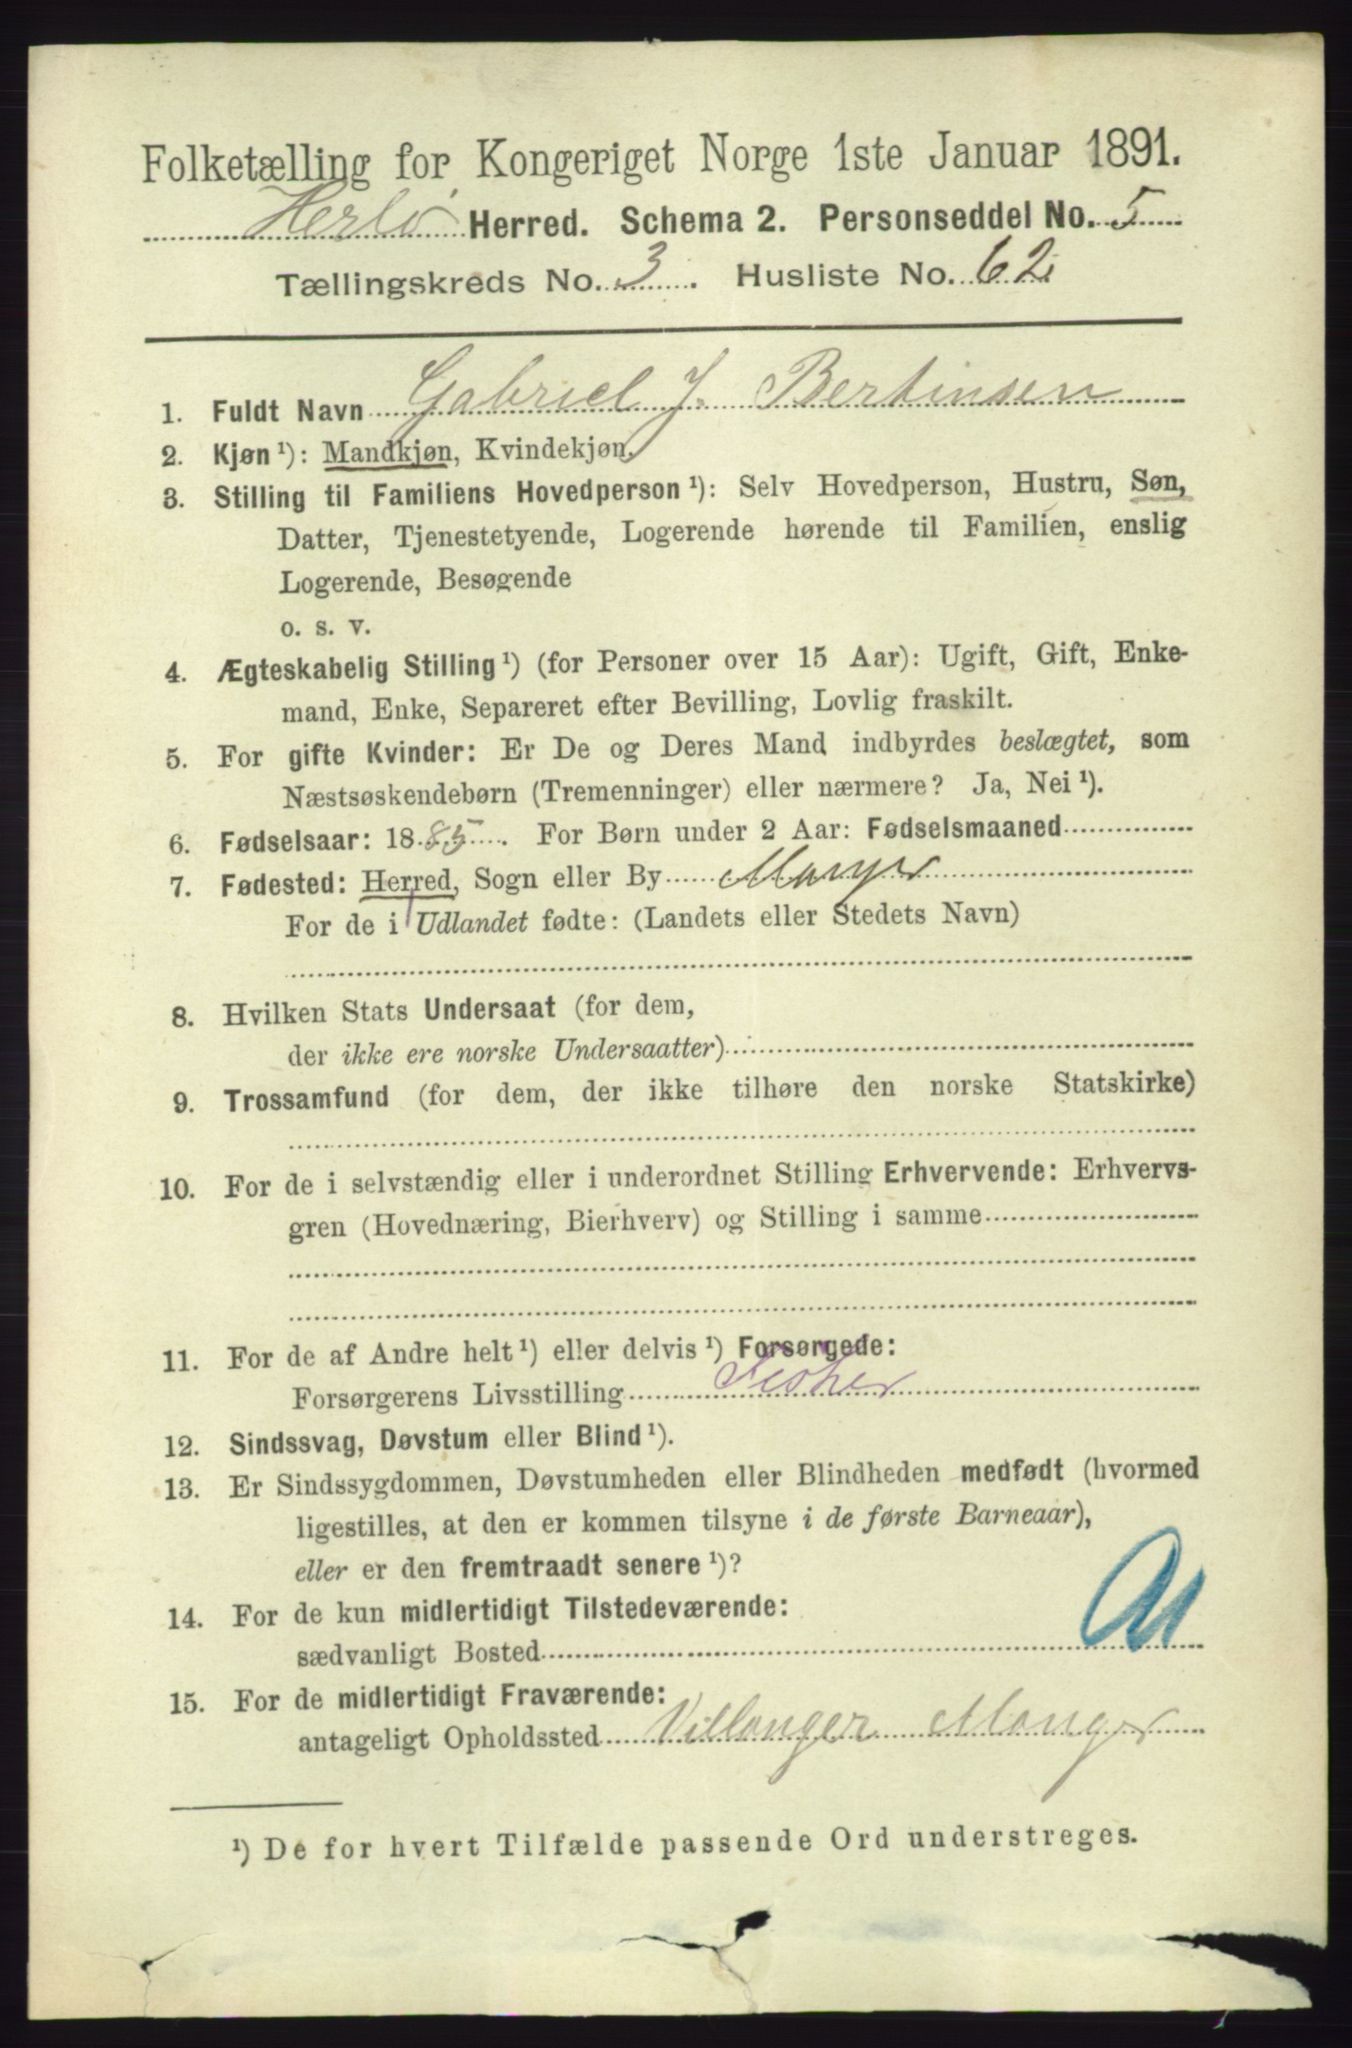 Folketælling for Kongeriget Norge 1ste Januar 1891.
Herlø Herred. Schema 2. Personseddel No. 5
Tællingskreds No. 3. Husliste No. 62
1. Fuldt Navn Gabriel J. Bertinsen
2. Kjøn¹): Mandkjøn, Kvindekjøn.
3. Stilling til Familiens Hovedperson¹): Selv Hovedperson, Hustru, Søn,
Datter, Tjenestetyende, Logerende hørende til Familien, enslig
Logerende, Besøgende
o. s. v.
4. Ægteskabelig Stilling¹) (for Personer over 15 Aar): Ugift, Gift, Enke-
mand, Enke, Separeret efter Bevilling, Lovlig fraskilt.
5. For gifte Kvinder: Er De og Deres Mand indbyrdes beslægtet, som
Næstsøskendebørn (Tremenninger) eller nærmere? Ja, Nei¹).
6. Fødselsaar: 1885. For Børn under 2 Aar: Fødselsmaaned
7. Fødested: Herred, Sogn eller By Manger
For de i Udlandet fødte: (Landets eller Stedets Navn)
8. Hvilken Stats Undersaat (for dem,
der ikke ere norske Undersaatter)
9. Trossamfund (for dem, der ikke tilhøre den norske Statskirke)
10. For de i selvstændig eller i underordnet Stilling Erhvervende: Erhvervs-
gren (Hovednæring, Bierhverv) og Stilling i samme
11. For de af Andre helt¹) eller delvis¹) Forsørgede:
Forsørgerens Livsstilling Fisker
12. Sindssvag, Døvstum eller Blind¹).
13. Er Sindssygdommen, Døvstumheden eller Blindheden medfødt (hvormed
ligestilles, at den er kommen tilsyne i de første Barneaar),
eller er den fremtraadt senere¹)?
14. For de kun midlertidigt Tilstedeværende:
sædvanligt Bosted
15. For de midlertidigt Fraværende:
antageligt Opholdssted Villanger Manger
¹) De for hvert Tilfælde passende Ord understreges.